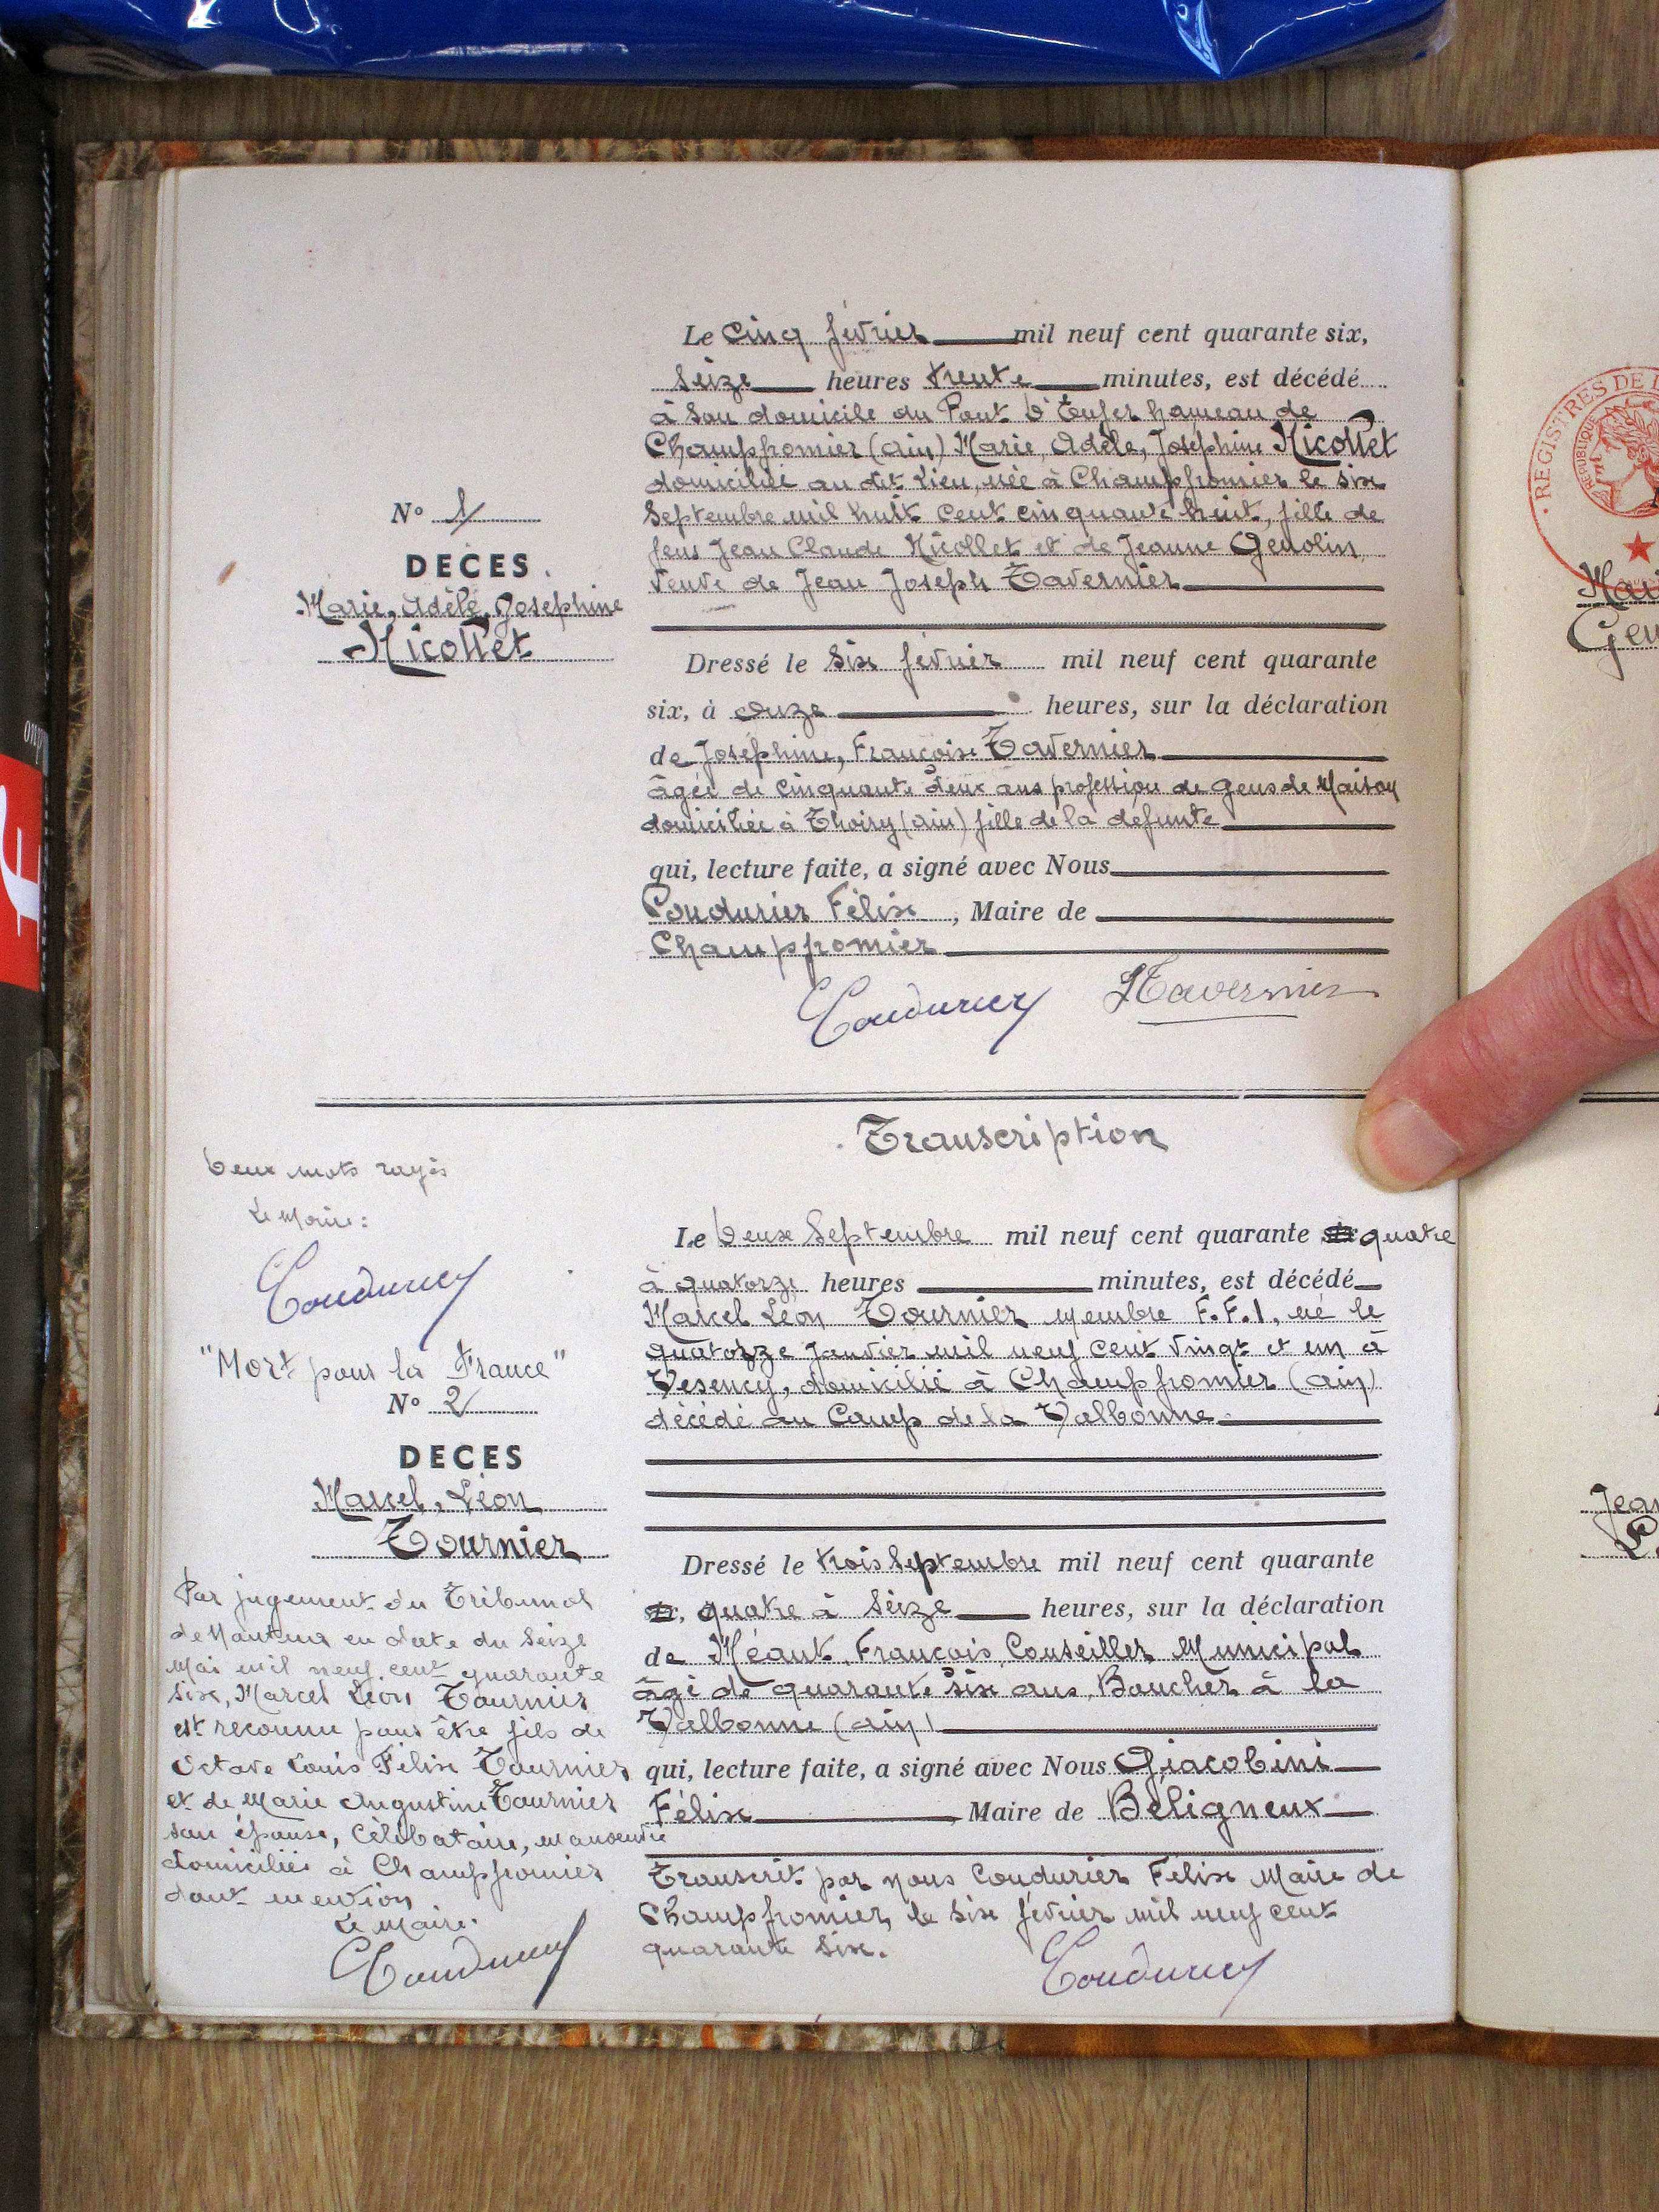 Le Cinq février mil neuf cent quarante six,
Seize heures trente minutes, est décédé
à son domicile du Pont d'Enfer hameau de
Champfromier (ain) Marie, Adèle, Josephine Nicollet
domiciliée au dit lieu, née à Champfromier le six
Septembre mil huit cent cinquante huit, fille de
feus Jean Claude Nicollet et de Jeanne Genolin
Veuve de Jean Joseph Tavernier
N° 1
DECES
Marie, Adèle, Josephine
Nicollet
Dressé le Six février mil neuf cent quarante
six, à onze heures, sur la déclaration
de Joséphine, Françoise Tavernier
âgée de cinquante deux ans profession de gens de Maison
domiciliée à Thoiry (ain) fille de la défunte
qui, lecture faite, a signé avec Nous
Coudurier Félix, Maire de
Champfromier
Coudurier Tavernier
REGISTRES DE
REPUBLIQUE
Transcription
Deux mots rayés
Le Maire:
Coudurier
"Mort pour la France"
N° 2
DECES
Marcel, Léon
Tournier
Par jugement du Tribunal
de Nantua en date du Seize
Mai mil neuf cent quarante
six, Marcel Léon Tournier
est reconnu pour être fils de
Octave Louis Félix Tournier
et de Marie Augustine Tournier
son épouse, Célibataire, manoeuvre
domiciliés à Champfromier
dont mention
Le Maire.
Coudurier
Le Deux Septembre mil neuf cent quarante six quatre
à quatorze heures minutes, est décédé
Marcel Léon Tournier membre F.F.I, né le
quatorze Janvier mil neuf cent vingt et un à
Vesency, domicilié à Champfromier (ain)
décédé au Camp de la Valbonne
Dressé le trois Septembre mil neuf cent quarante
six, quatre à Seize heures, sur la déclaration
de Méant, François, Conseiller Municipal
âgé de quarante six ans, Boucher à la
Valbonne (ain)
qui, lecture faite, a signé avec Nous Giacobini
Félix, Maire de Béligneux
Transcrit par nous Coudurier Félix Maire de
Champfromier, le six février mil neuf cent
quarante six.
Coudurier